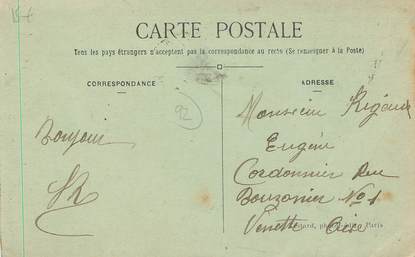 CARTE POSTALE
Tous les pays étrangers n'acceptent pas la correspondance au recto (Se renseigner à la Poste)
CORRESPONDANCE
ADRESSE
92
Bonjour
Monsieur
Eugène
Cordonnier Rue
No 1
Venette Oise
Paris